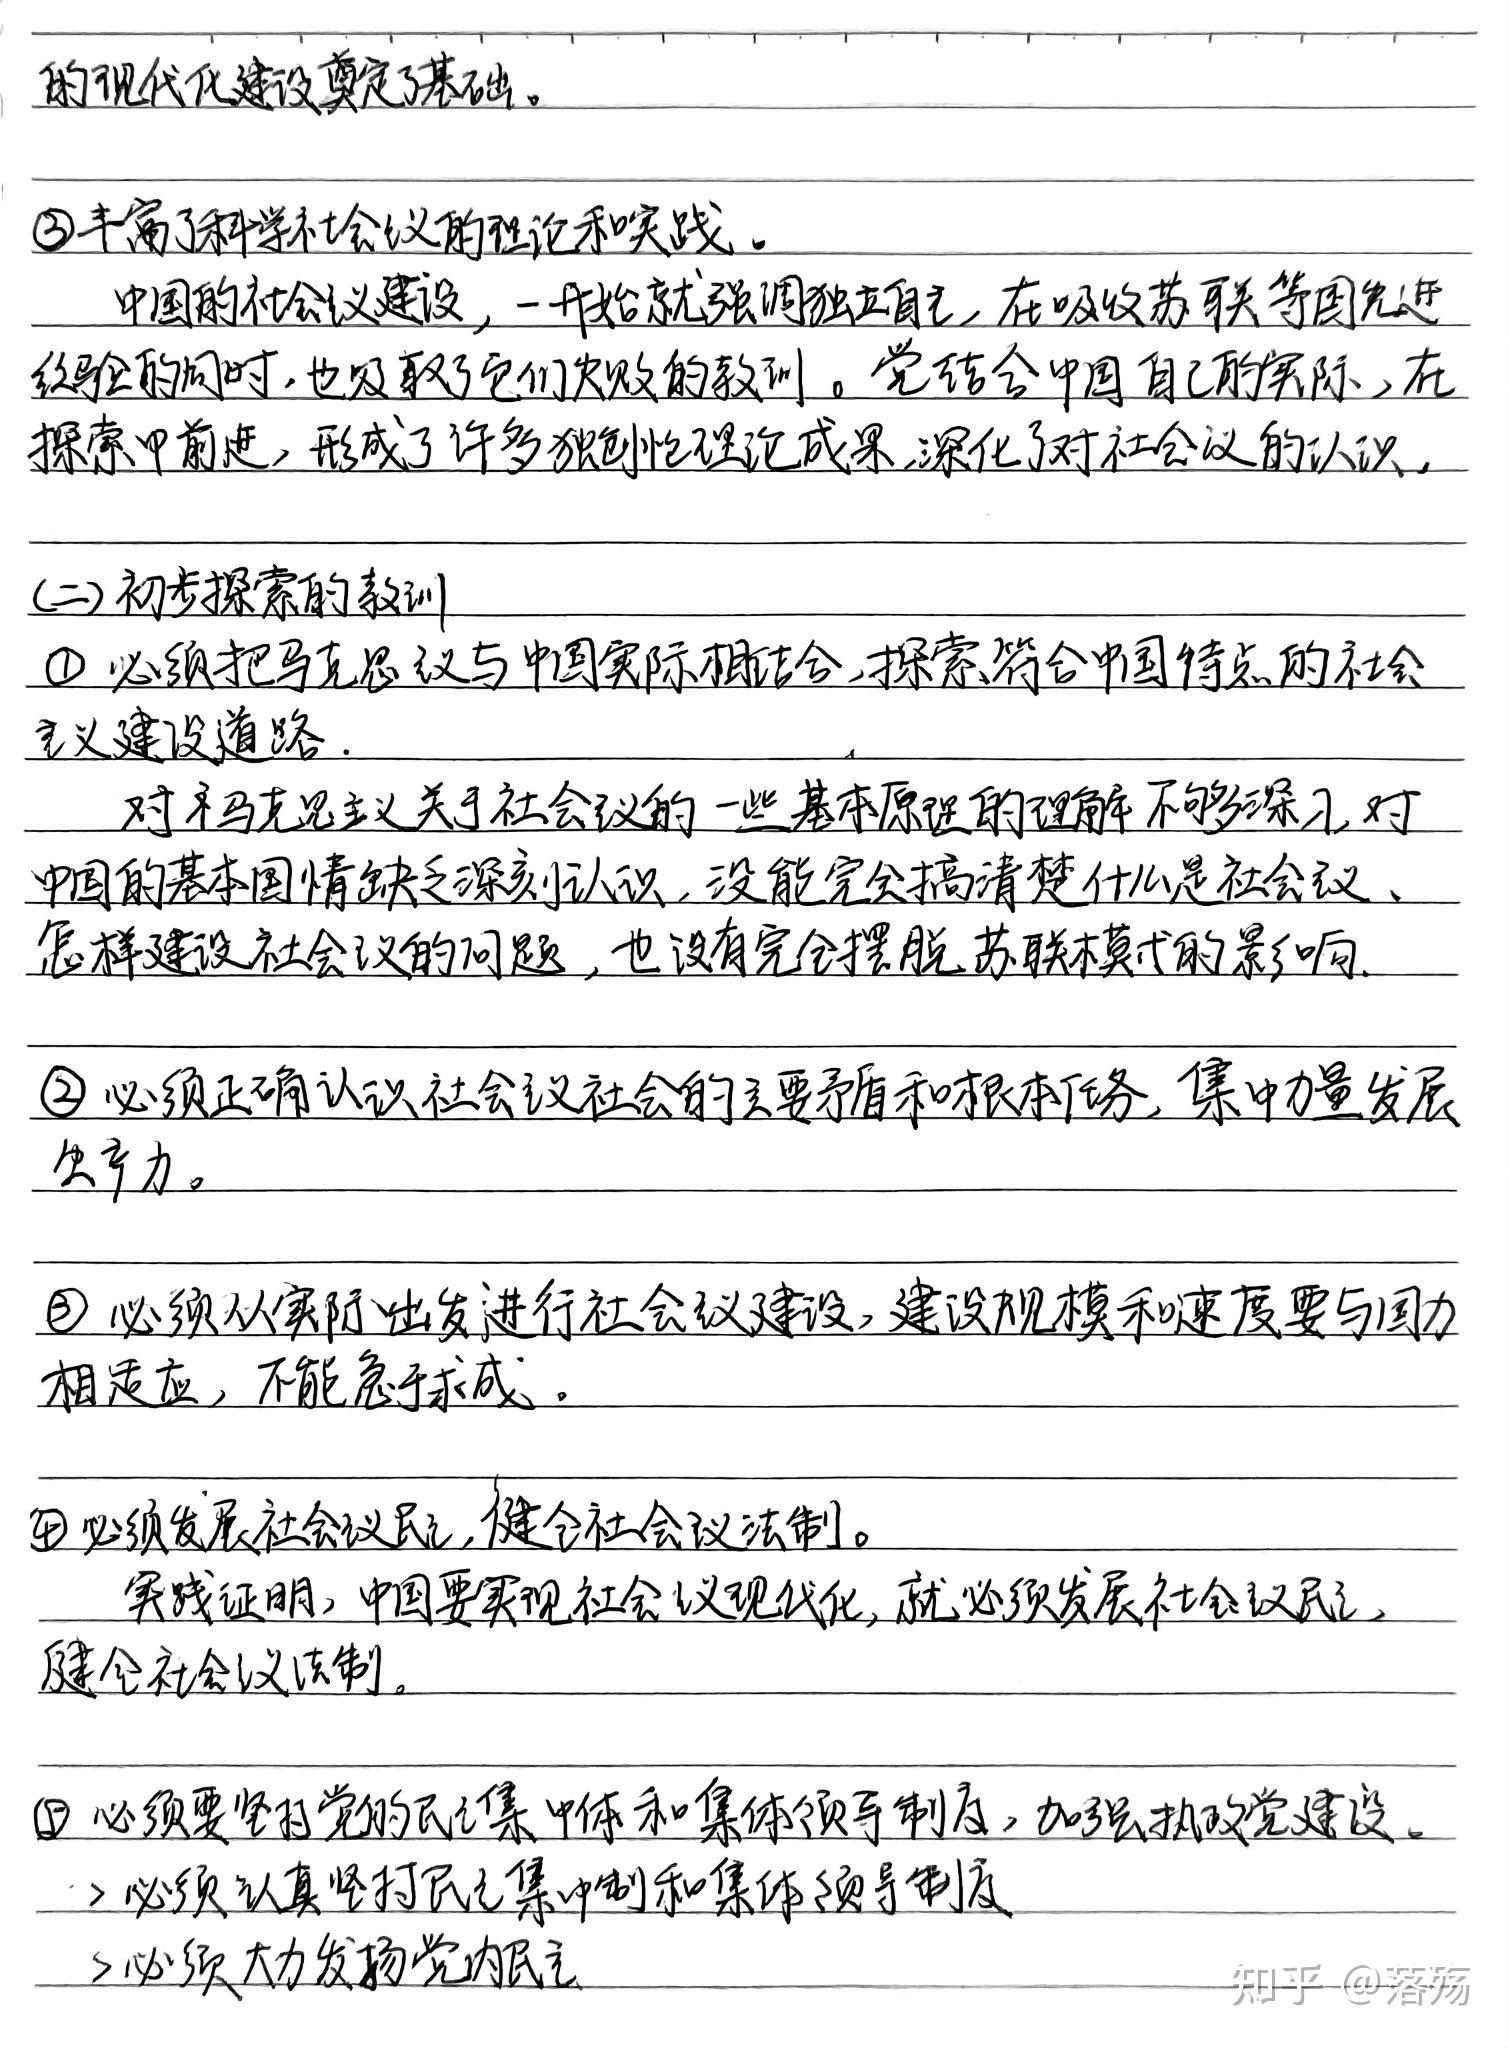 的现代化建设奠定了基础。
③丰富了科学社会议的理论和实践。
中国的社会议建设，一开始就强调独立自主，在吸收苏联等国先进
经验的同时，也吸取了它们失败的教训。党结合中国自己的实际，在
探索中前进，形成了许多独创性理论成果，深化了对社会议的认识，
（二）初步探索的教训
① 必须把马克思议与中国实际相结合，探索符合中国特点的社会
主义建设道路.
对马克思主义关于社会议的一些基本原理的理解不够深入，对
中国的基本国情缺乏深刻认识，没能完全搞清楚什么是社会议、
怎样建设社会议的问题，也没有完全摆脱苏联模式的影响.
② 必须正确认识社会议社会的主要矛盾和根本任务，集中力量发展
生产力。
③ 必须从实际出发进行社会议建设，建设规模和速度要与国力
相适应，不能急于求成。
④ 必须发展社会议民主，健全社会议法制。
实践证明，中国要实现社会议现代化，就必须发展社会议民主，
健全社会议法制。
⑤ 必须要坚持党的民主集中体和集体领导制度，加强执政党建设。
>必须认真坚持民主集中制和集体领导制度
>必须大力发扬党内民主
知乎 @落殇